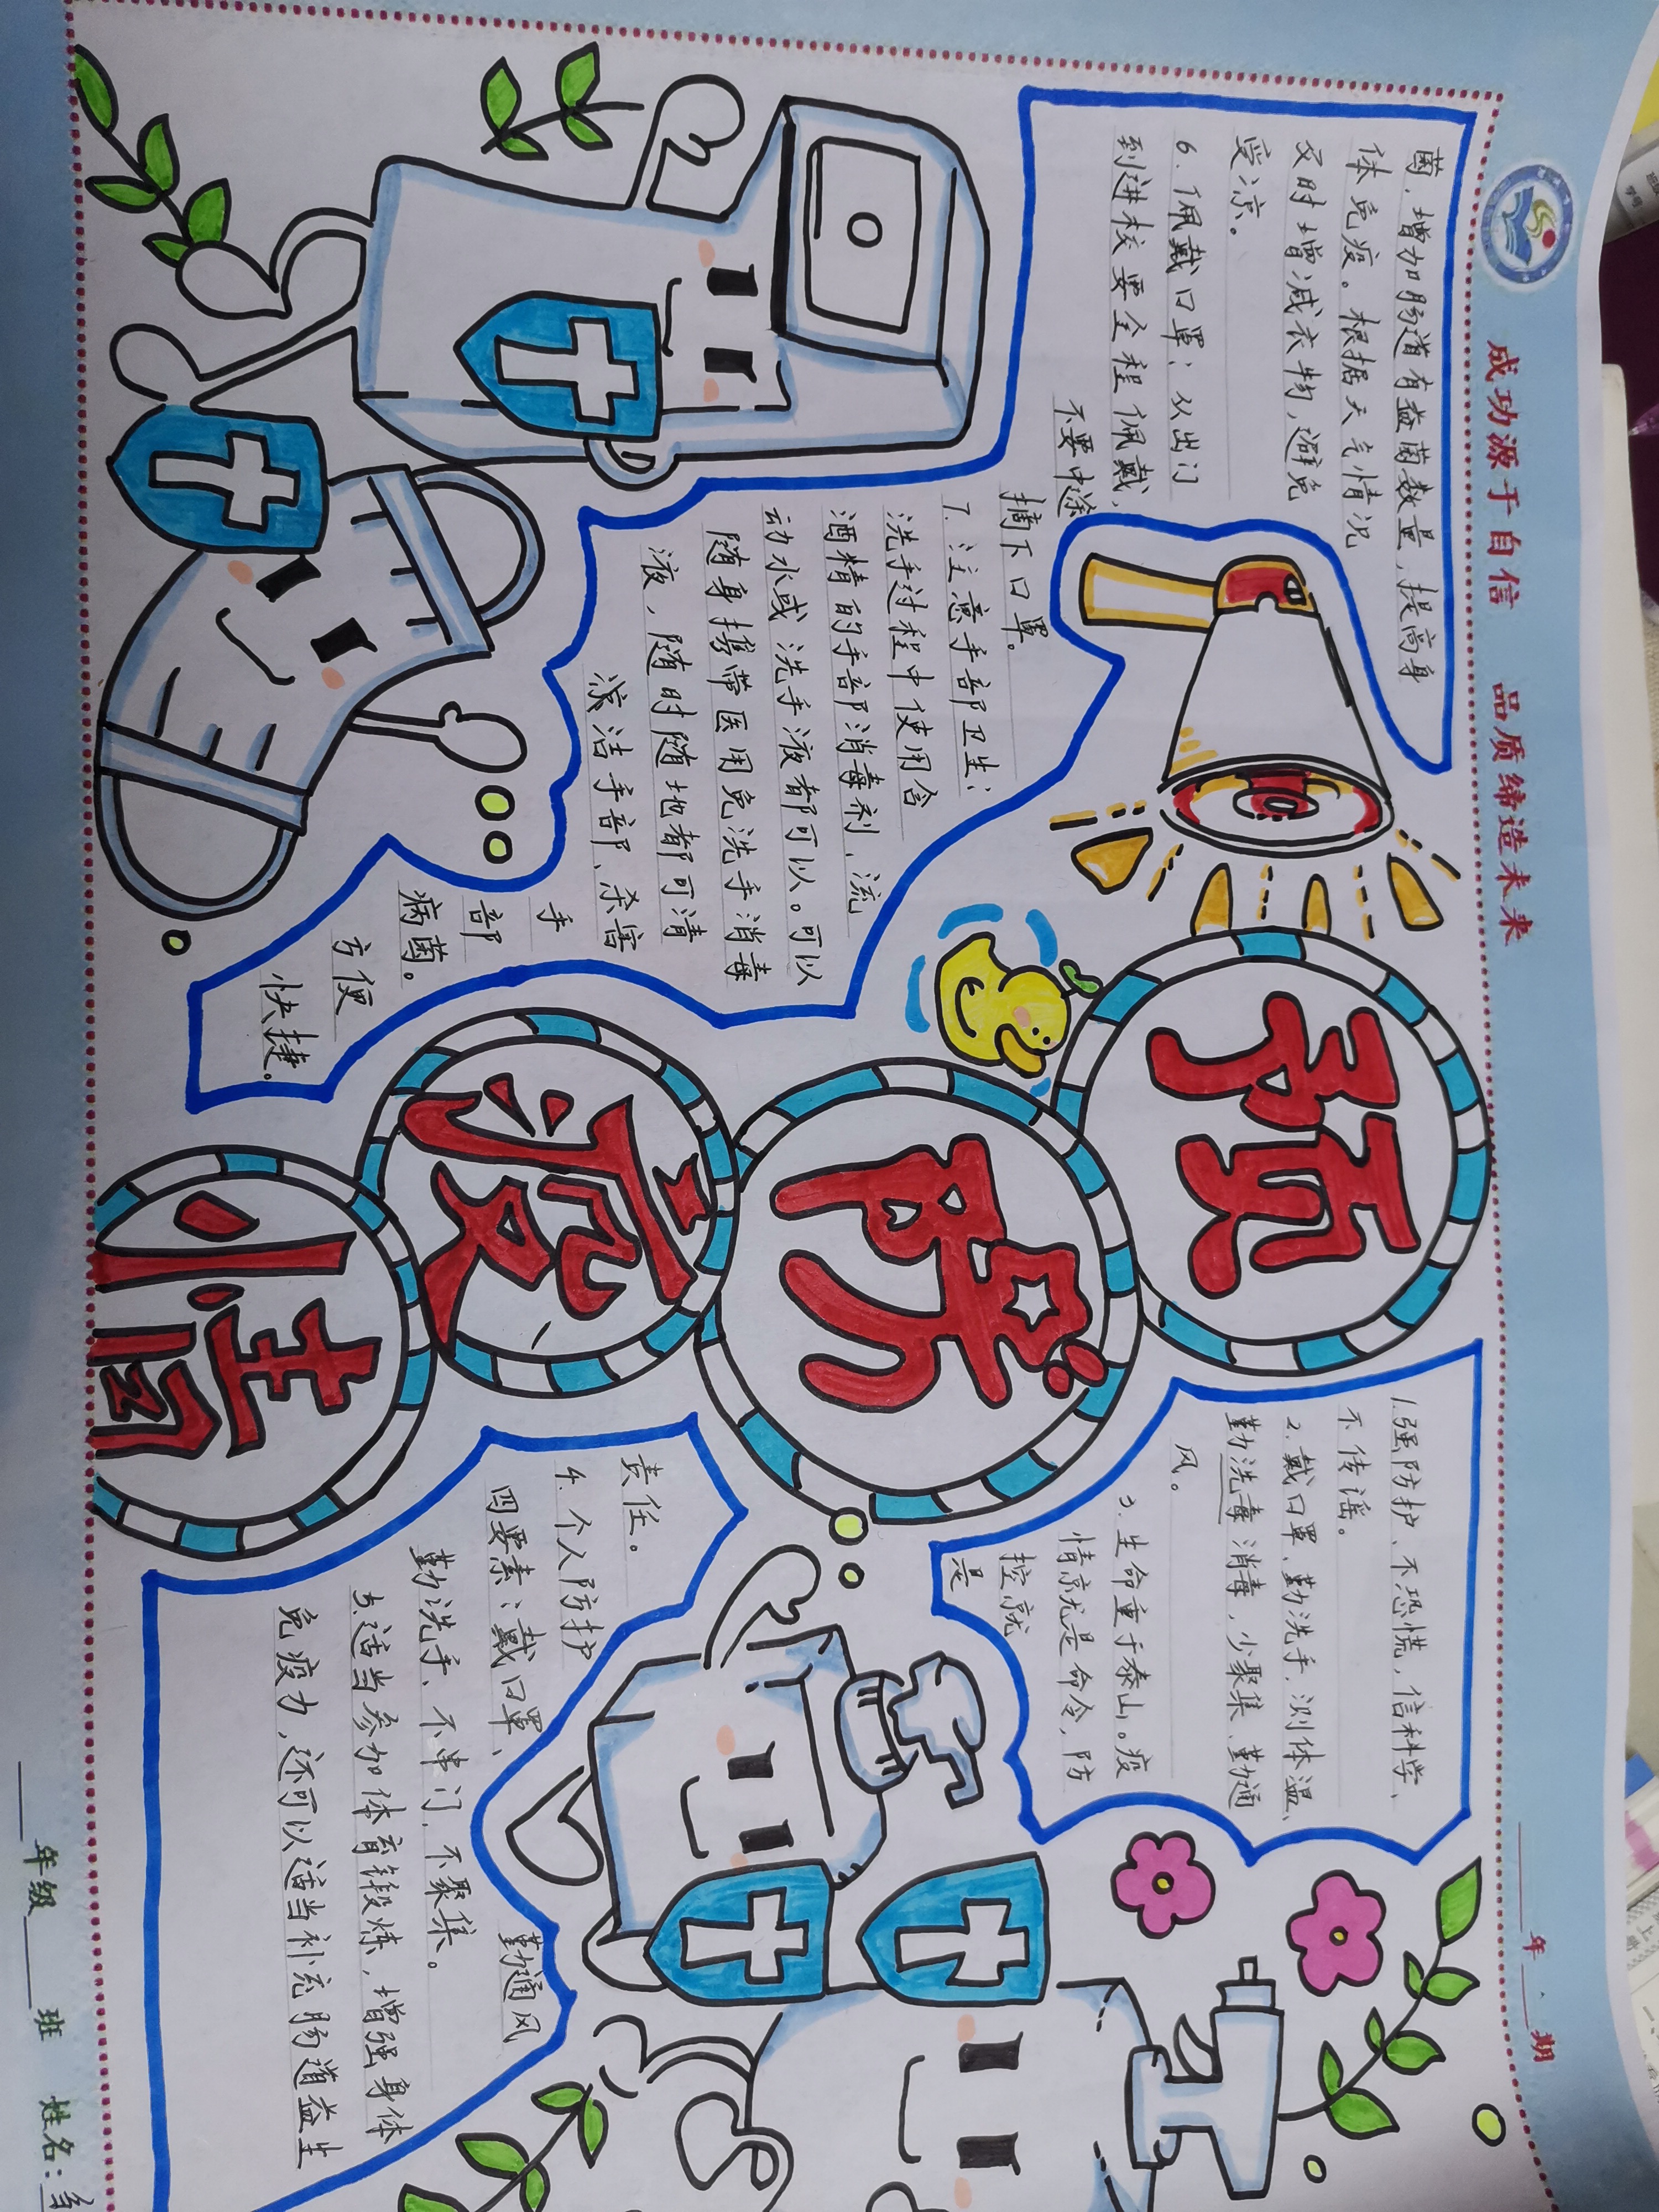 成功源于自信 品质缔造未来
年 期
预防疫情
1.强防护、不恐慌，信科学、
不传谣。
2.戴口罩、勤洗手，测体温、
勤洗毒消毒，少聚集、勤通
风。
3.生命重于泰山。疫
情就是命令，防
控就
是
责任。
4.个人防护
四要素：戴口罩、勤通风
勤洗手、不串门，不聚集。
5.适当参加体育锻炼，增强身体
免疫力，还可以适当补充肠道益生
菌，增加肠道有益菌数量，提高身
体免疫。根据天气情况
及时增减衣物，避免
受凉。
6.佩戴口罩：从出门
到进校要全程佩戴，
不要中途
摘下口罩。
7.注意手部卫生：
洗手过程中使用含
酒精的手部消毒剂、流
动水或洗手液都可以。可以
随身携带医用免洗手消毒
液，随时随地都可清
洁手部、杀害
手
部
病菌。
方便
快捷。
年级 班 姓名：